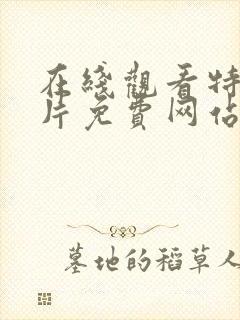 在綫觀看特
片免費网佔
墓地的稻草人